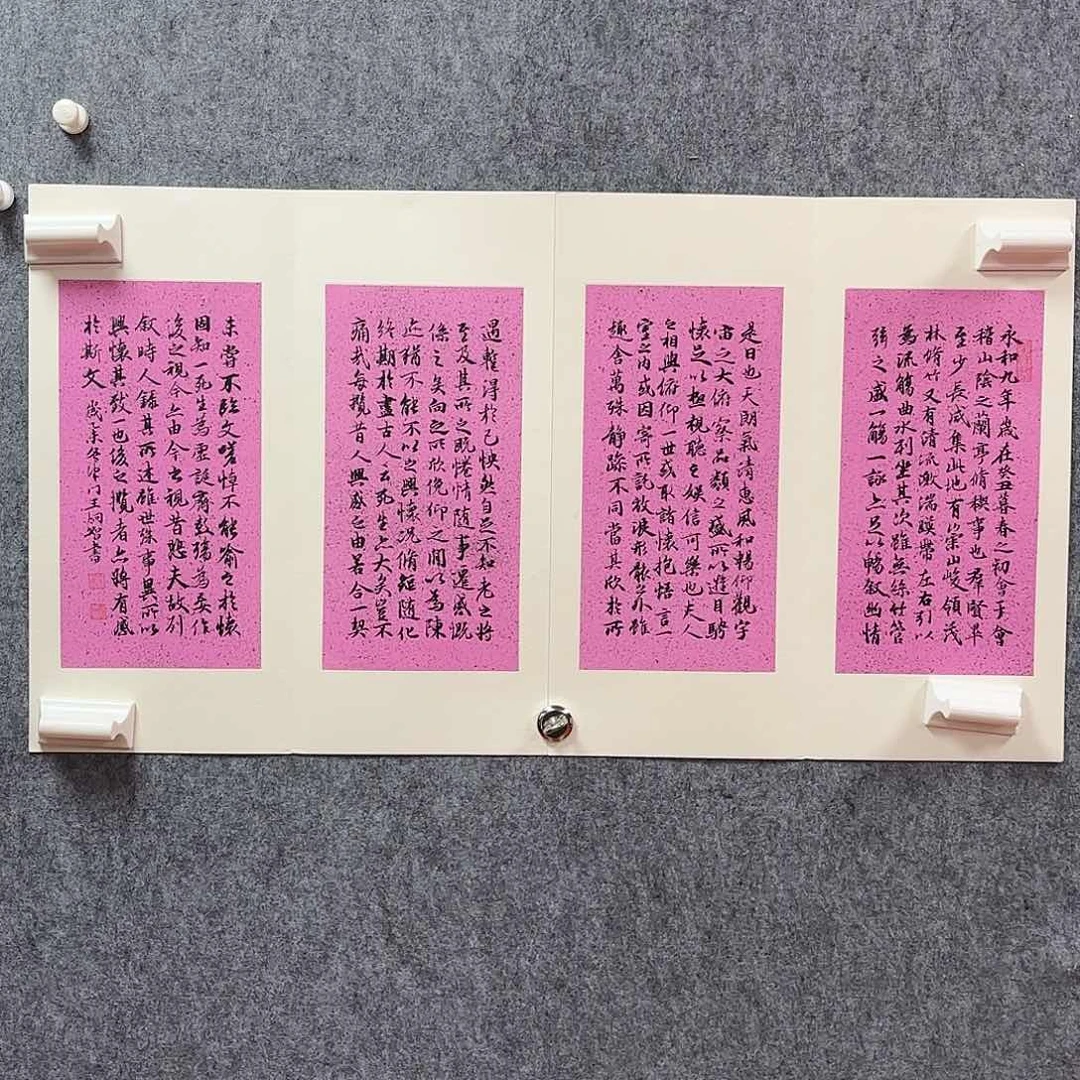 永和九年歲在癸丑暮春之初會于會
稽山陰之蘭亭脩稧事也羣賢畢
至少長咸集此地有崇山峻領茂
林脩竹又有清流激湍暎帶左右引以
為流觴曲水列坐其次雖無絲竹管
弦之盛一觴一詠亦足以暢敘幽情
是日也天朗氣清惠風和暢仰觀宇
宙之大俯察品類之盛所以遊目騁
懷足以極視聽之娛信可樂也夫人
之相與俯仰一世或取諸懷抱悟言一
室之內或因寄所託放浪形骸之外雖
趣舍萬殊靜躁不同當其欣於所
遇暫得於己怏然自足不知老之將
至及其所之既惓情隨事遷感慨
係之矣向之所欣俛仰之間以為陳
迹猶不能不以之興懷況脩短隨化
終期於盡古人云死生亦大矣豈不
痛哉每攬昔人興感之由若合一契
未嘗不臨文嗟悼不能喻之於懷
固知一死生為虛誕齊彭殤為妄作
後之視今亦由今之視昔悲夫故列
敘時人錄其所述雖世殊事異所以
興懷其致一也後之攬者亦將有感
於斯文 歲乙未冬津門王炳智書